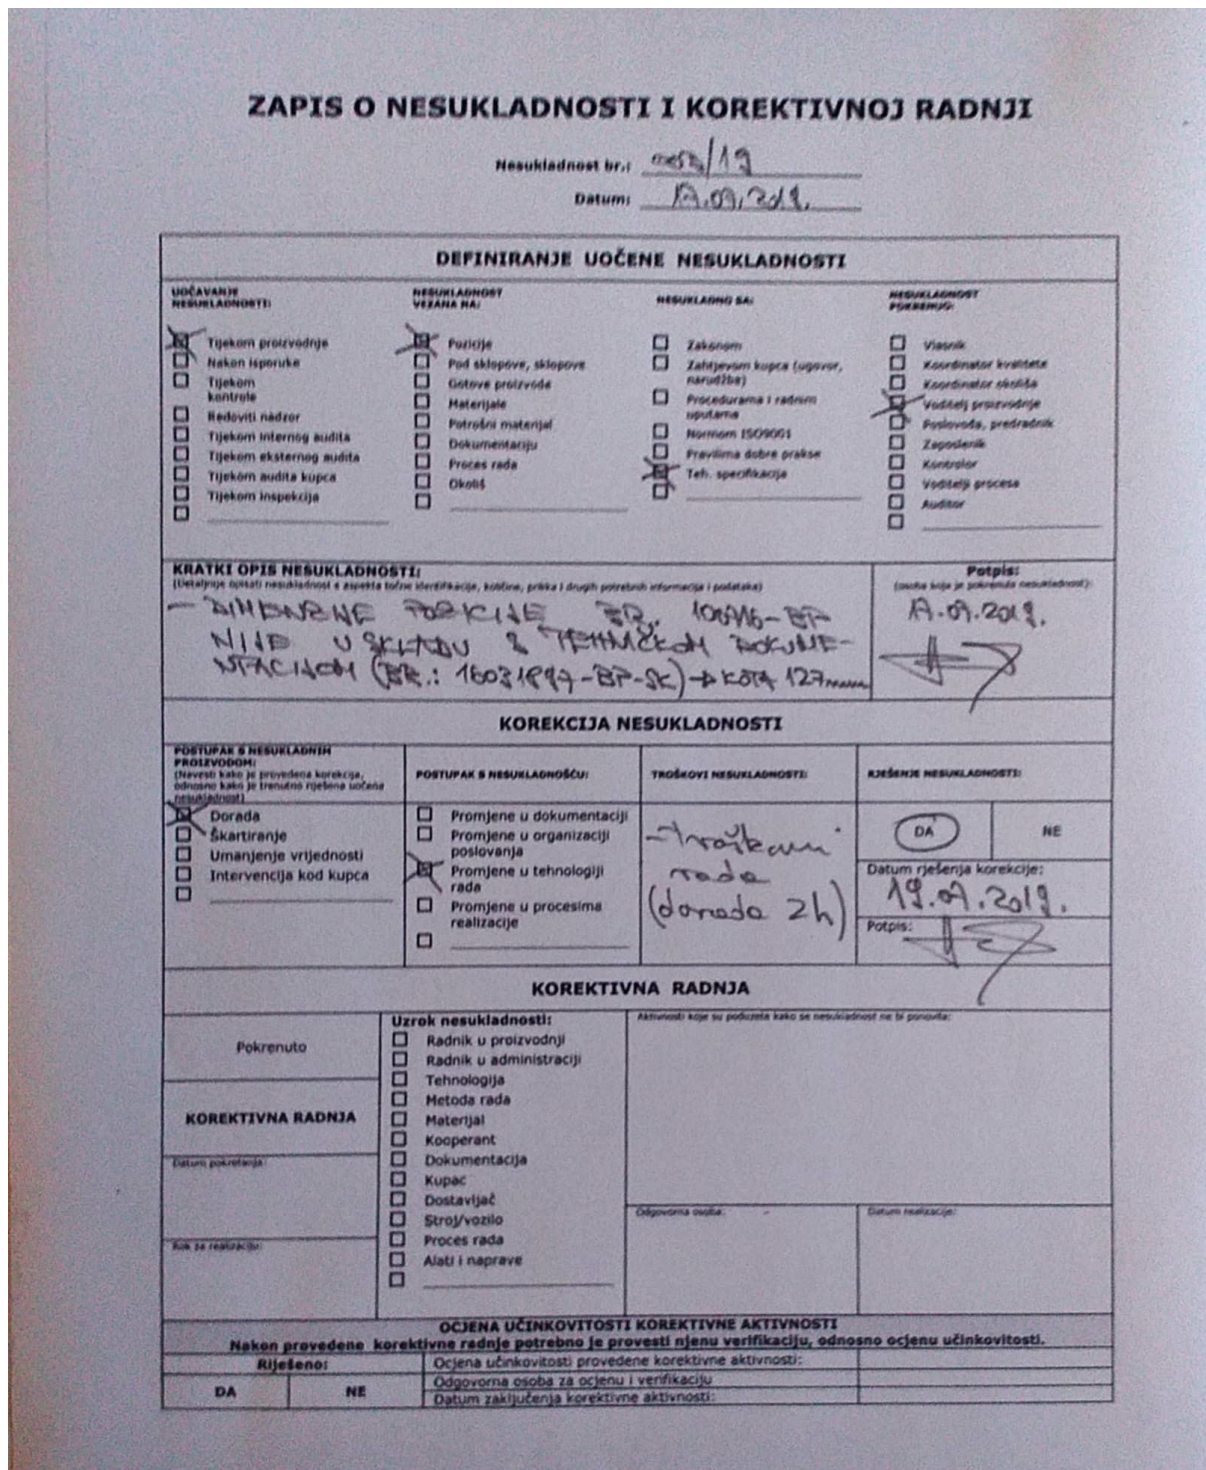 ZAPIS O NESUKLADNOSTI I KOREKTIVNOJ RADNJI
Nesukladnost br.: /19
Datum: 17.07.2019.
DEFINIRANJE UOČENE NESUKLADNOSTI
UOČAVANJE
NESUKLADNOSTI:
Tijekom proizvodnje
Nakon isporuke
Tijekom
kontrole
Redoviti nadzor
Tijekom internog audita
Tijekom eksternog audita
Tijekom audita kupca
Tijekom inspekcija
NESUKLADNOST
VEZANA NA:
Pozicije
Pod sklopove, sklopove
Gotove proizvode
Materijale
Potrošni materijal
Dokumentaciju
Proces rada
Okoliš
NESUKLADNO SA:
Zakonom
Zahtjevom kupca (ugovor,
narudžba)
Procedurama i radnim
uputama
Normom ISO9001
Pravilima dobre prakse
Teh. specifikacija
NESUKLADNOST
POKRENUO:
Vlasnik
Koordinator kvalitete
Koordinator okoliša
Voditelj proizvodnje
Poslovođa, predradnik
Zaposlenik
Kontrolor
Voditelj procesa
Auditor
KRATKI OPIS NESUKLADNOSTI:
(Detaljnije opisati nesukladnost s aspekta točne identifikacije, količine, prilika i drugih potrebnih informacija i podataka)
- POZICIJE BR.
NIJE U SKLADU S TEHNIČKOM DOKUME-
NTACIJOM (BR.: -BP-SK) → KOTA 127
Potpis:
(osoba koja je pokrenula nesukladnost):
17.07.2019.
KOREKCIJA NESUKLADNOSTI
POSTUPAK S NESUKLADNIM
PROIZVODOM:
(Navesti kako je provedena korekcija,
odnosno kako je trenutno riješena uočena
nesukladnost)
Dorada
Škartiranje
Umanjenje vrijednosti
Intervencija kod kupca
POSTUPAK S NESUKLADNOŠĆU:
Promjene u dokumentaciji
Promjene u organizaciji
poslovanja
Promjene u tehnologiji
rada
Promjene u procesima
realizacije
TROŠKOVI NESUKLADNOSTI:
- troškovi
rada
(dorada 2h)
RJEŠENJE NESUKLADNOSTI:
DA
NE
Datum rješenja korekcije:
19.07.2019.
Potpis:
KOREKTIVNA RADNJA
Pokrenuto
KOREKTIVNA RADNJA
Datum pokretanja:
Rok za realizaciju:
Uzrok nesukladnosti:
Radnik u proizvodnji
Radnik u administraciji
Tehnologija
Metoda rada
Materijal
Kooperant
Dokumentacija
Kupac
Dostavljač
Stroj/vozilo
Proces rada
Alati i naprave
Aktivnosti koje su poduzete kako se nesukladnost ne bi ponovila:
Odgovorna osoba:
Datum realizacije:
OCJENA UČINKOVITOSTI KOREKTIVNE AKTIVNOSTI
Nakon provedene korektivne radnje potrebno je provesti njenu verifikaciju, odnosno ocjenu učinkovitosti.
Riješeno:
DA
NE
Ocjena učinkovitosti provedene korektivne aktivnosti:
Odgovorna osoba za ocjenu i verifikaciju
Datum zaključenja korektivne aktivnosti: